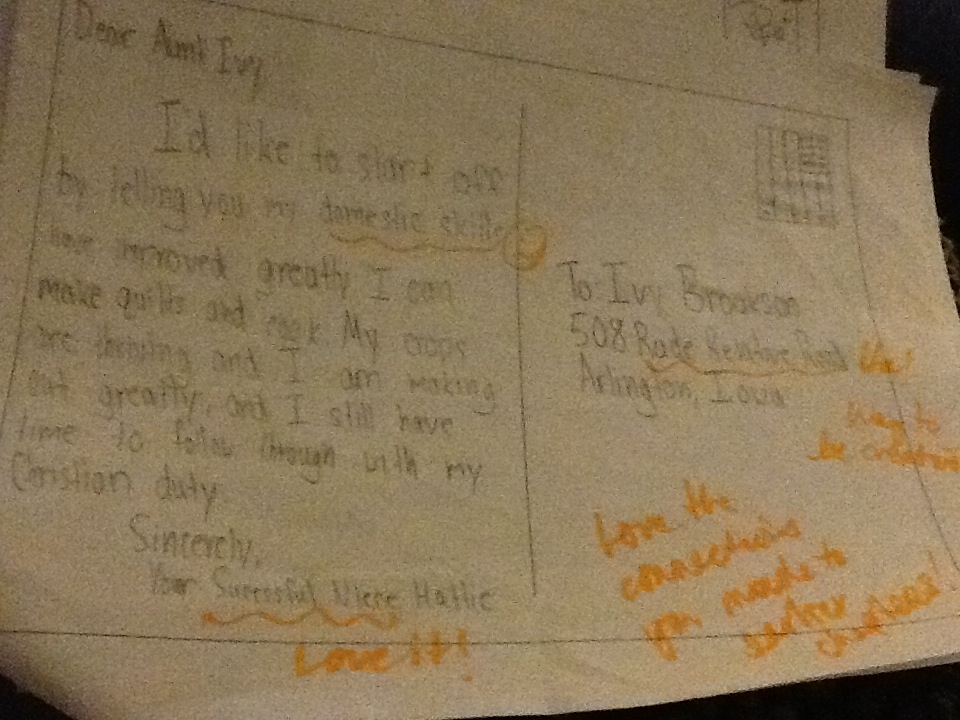 Dear Aunt Ivy
I'd like to start off
by telling you my domestic skills
have improved greatly I can
make quilts and cook My crops
are thriving and I am making
out greatly, and I still have
time to follow through with my
Christian duty
Sincerely,
Your Successful Niece Hattie
Love it!
To Ivy Brookson
508 Rude Relative Road
Arlington, Iowa
Way to
be creative
Love the
connections
you made to
earlier